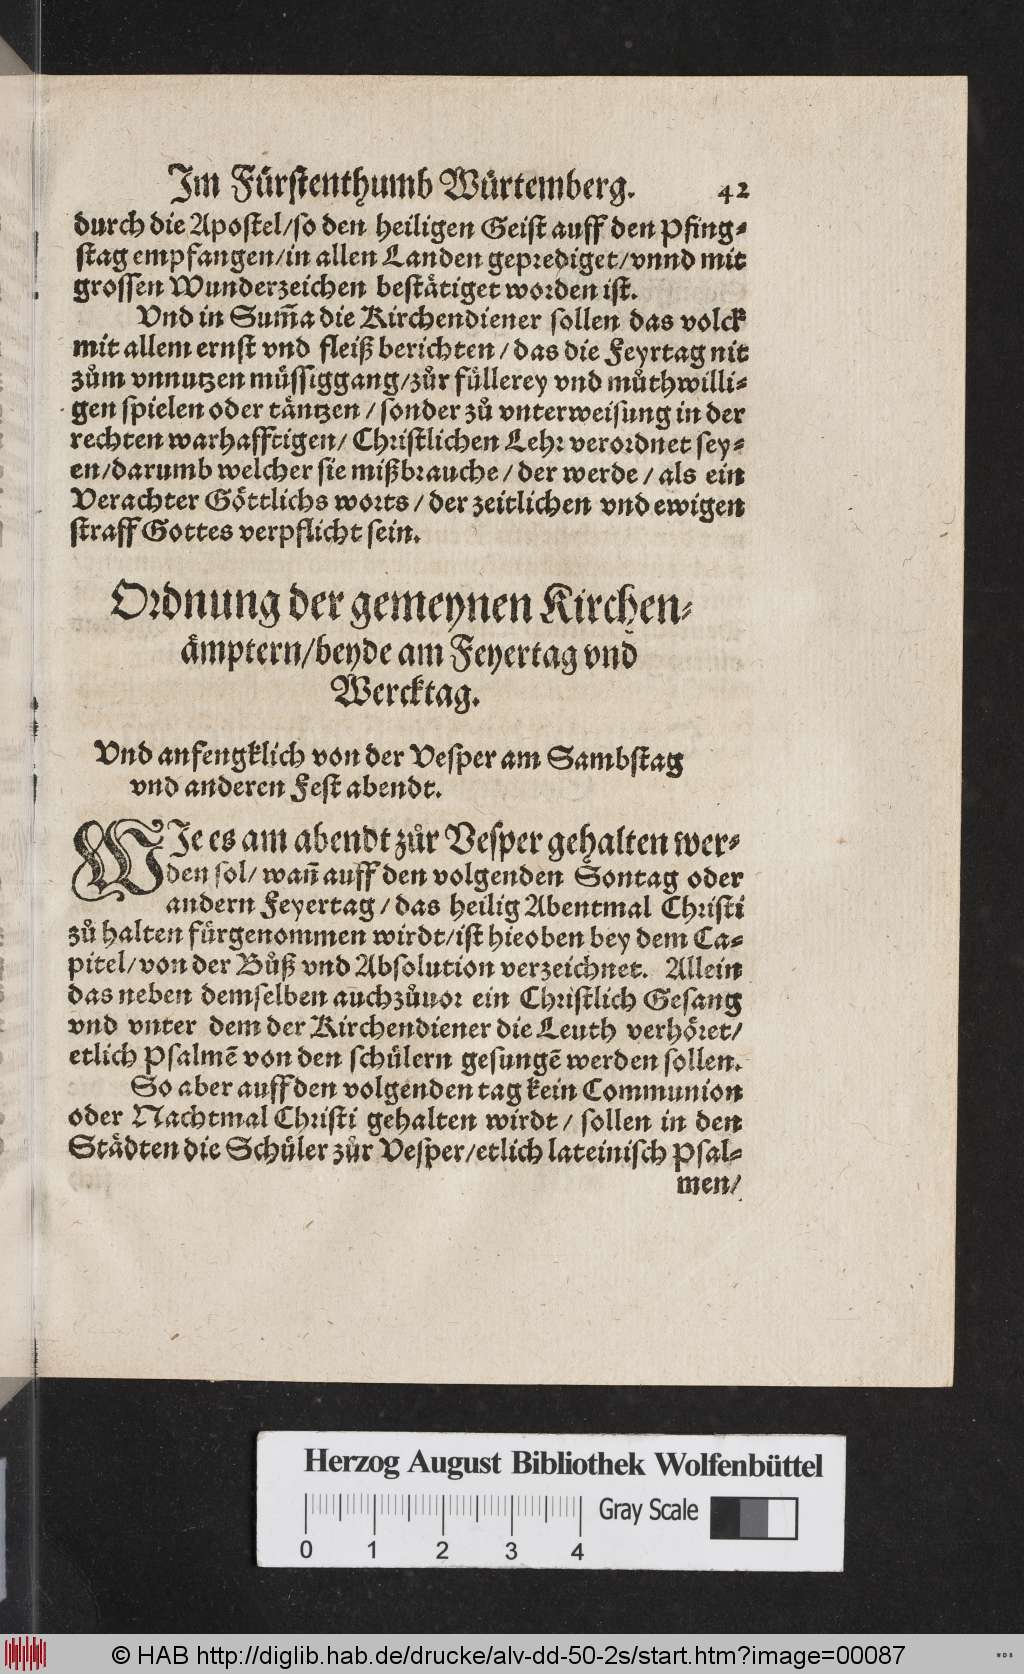 Im Fürstenthumb Würtemberg. 42
durch die Apostel/so den heiligen Geist auff den Pfing-
stag empfangen/in allen Landen geprediget/vnnd mit
grossen Wunderzeichen bestätiget worden ist.
Vnd in Sum̃a die Kirchendiener sollen das volck
mit allem ernst vnd fleiß berichten/das die Feyrtag nit
zům vnnutzen müssiggang/zůr füllerey vnd můthwilli-
gen spielen oder täntzen/sonder zů vnterweisung in der
rechten warhafftigen/Christlichen Lehr verordnet sey-
en/darumb welcher sie mißbrauche/der werde/als ein
Verachter Göttlichs worts/der zeitlichen vnd ewigen
straff Gottes verpflicht sein.
Ordnung der gemeynen Kirchen-
ämptern/beyde am Feyertag vnd
Wercktag.
Vnd anfengklich von der Vesper am Sambstag
vnd anderen Fest abendt.
WIe es am abendt zůr Vesper gehalten wer-
den sol/wañ auff den volgenden Sontag oder
andern Feyertag/das heilig Abentmal Christi
zů halten fürgenommen wirdt/ist hieoben bey dem Ca-
pitel/von der Bůß vnd Absolution verzeichnet. Allein
das neben demselben auch zůuor ein Christlich Gesang
vnd vnter dem der Kirchendiener die Leuth verhöret/
etlich Psalmẽ von den schülern gesungẽ werden sollen.
So aber auff den volgenden tag kein Communion
oder Nachtmal Christi gehalten wirdt/sollen in den
Städten die Schüler zůr Vesper/etlich lateinisch Psal-
men/
Herzog August Bibliothek Wolfenbüttel
Gray Scale
0 1 2 3 4
© HAB http://diglib.hab.de/drucke/alv-dd-50-2s/start.htm?image=00087